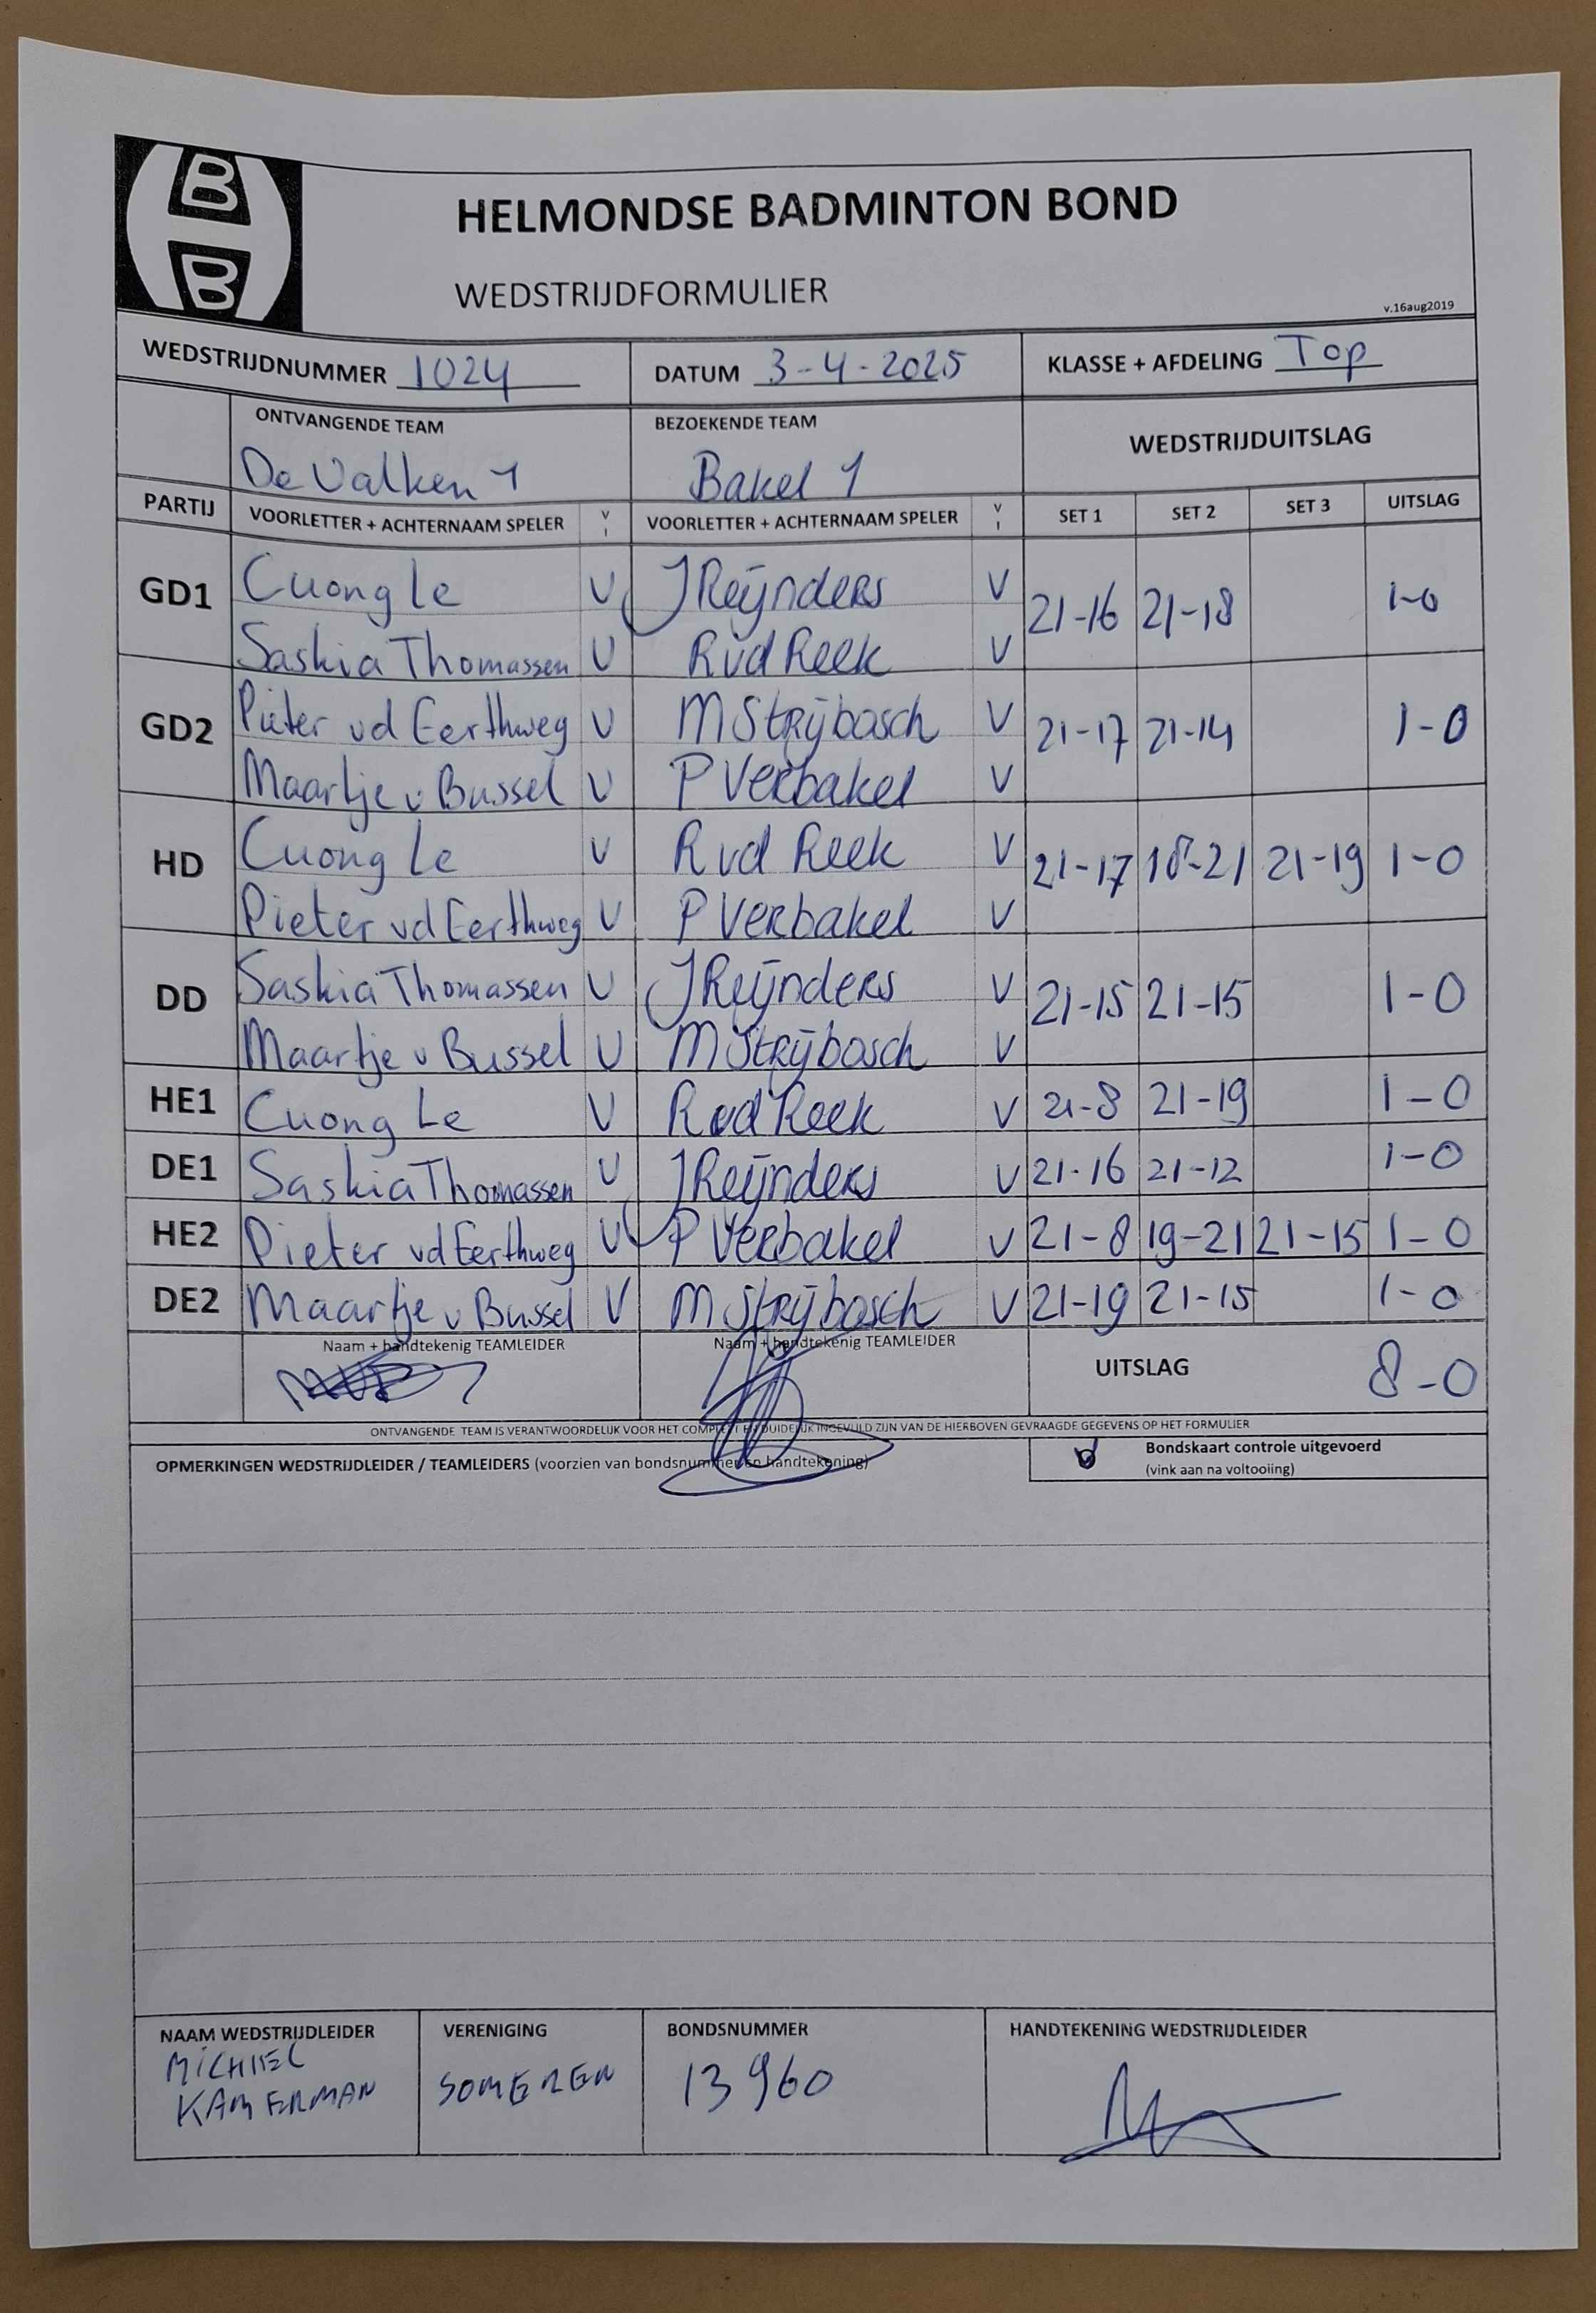 B
B
HELMONDSE BADMINTON BOND
WEDSTRIJDFORMULIER
v.16aug2019
WEDSTRIJDNUMMER 1024 DATUM 3-4-2025 KLASSE + AFDELING Top
ONTVANGENDE TEAM BEZOEKENDE TEAM WEDSTRIJDUITSLAG
De Valken 1 Bakel 1
PARTIJ VOORLETTER + ACHTERNAAM SPELER V I VOORLETTER + ACHTERNAAM SPELER V I SET 1 SET 2 SET 3 UITSLAG
GD1 Cuong Le V J Reijnders V 21-16 21-18 1-0
Saskia Thomassen V R vd Reek V
GD2 Pieter vd Eerthweg V M Strijbosch V 21-17 21-14 1-0
Maartje v Bussel V P Verbakel V
HD Cuong Le V R vd Reek V 21-17 18-21 21-19 1-0
Pieter vd Eerthweg V P Verbakel V
DD Saskia Thomassen V J Reijnders V 21-15 21-15 1-0
Maartje v Bussel V M Strijbosch V
HE1 Cuong Le V R vd Reek V 21-8 21-19 1-0
DE1 Saskia Thomassen V J Reijnders V 21-16 21-12 1-0
HE2 Pieter vd Eerthweg V P Verbakel V 21-8 19-21 21-15 1-0
DE2 Maartje v Bussel V M Strijbosch V 21-19 21-15 1-0
Naam + handtekenig TEAMLEIDER Naam + handtekenig TEAMLEIDER UITSLAG 8-0
ONTVANGENDE TEAM IS VERANTWOORDELIJK VOOR HET COMPLEET EN DUIDELIJK INGEVULD ZIJN VAN DE HIERBOVEN GEVRAAGDE GEGEVENS OP HET FORMULIER
OPMERKINGEN WEDSTRIJDLEIDER / TEAMLEIDERS (voorzien van bondsnummer en handtekening)
Bondskaart controle uitgevoerd
(vink aan na voltooiing)
NAAM WEDSTRIJDLEIDER VERENIGING BONDSNUMMER HANDTEKENING WEDSTRIJDLEIDER
MICHIEL
KAMERMAN SOMEREN 13960